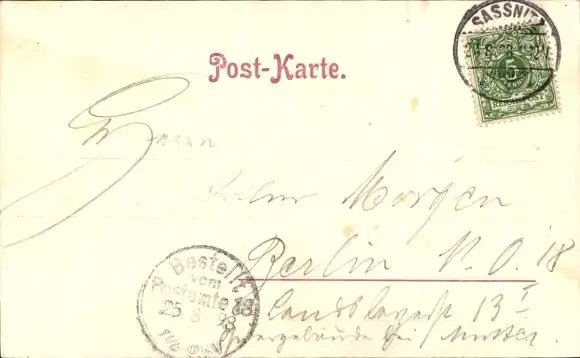 SASSNITZ
5
REICHSPOST
Post-Karte.
Herrn
Morgen
Berlin N. O. 18
Landsbergerstr 13 I
bei Mutter.
Bestellt
vom
Postamte 18
25 8 98